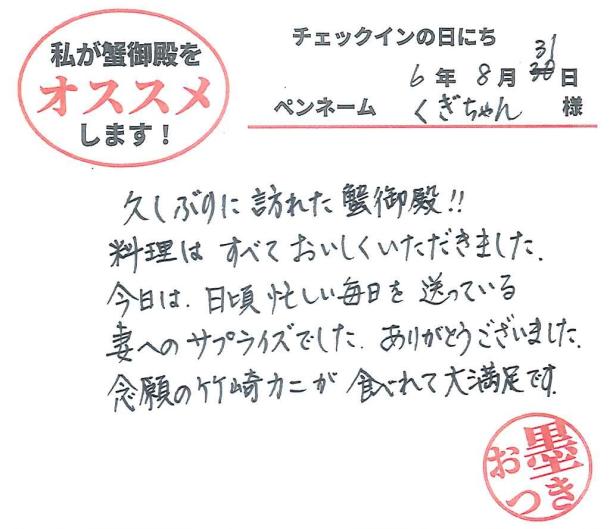 私が蟹御殿を
オススメ
します！
チェックインの日にち
31
6年8月30日
ペンネーム くぎちゃん 様
久しぶりに訪れた蟹御殿!!
料理はすべておいしくいただきました.
今日は、日頃忙しい毎日を送っている
妻へのサプライズでした. ありがとうございました.
念願の竹崎カニが食べれて大満足です.
お墨
つき